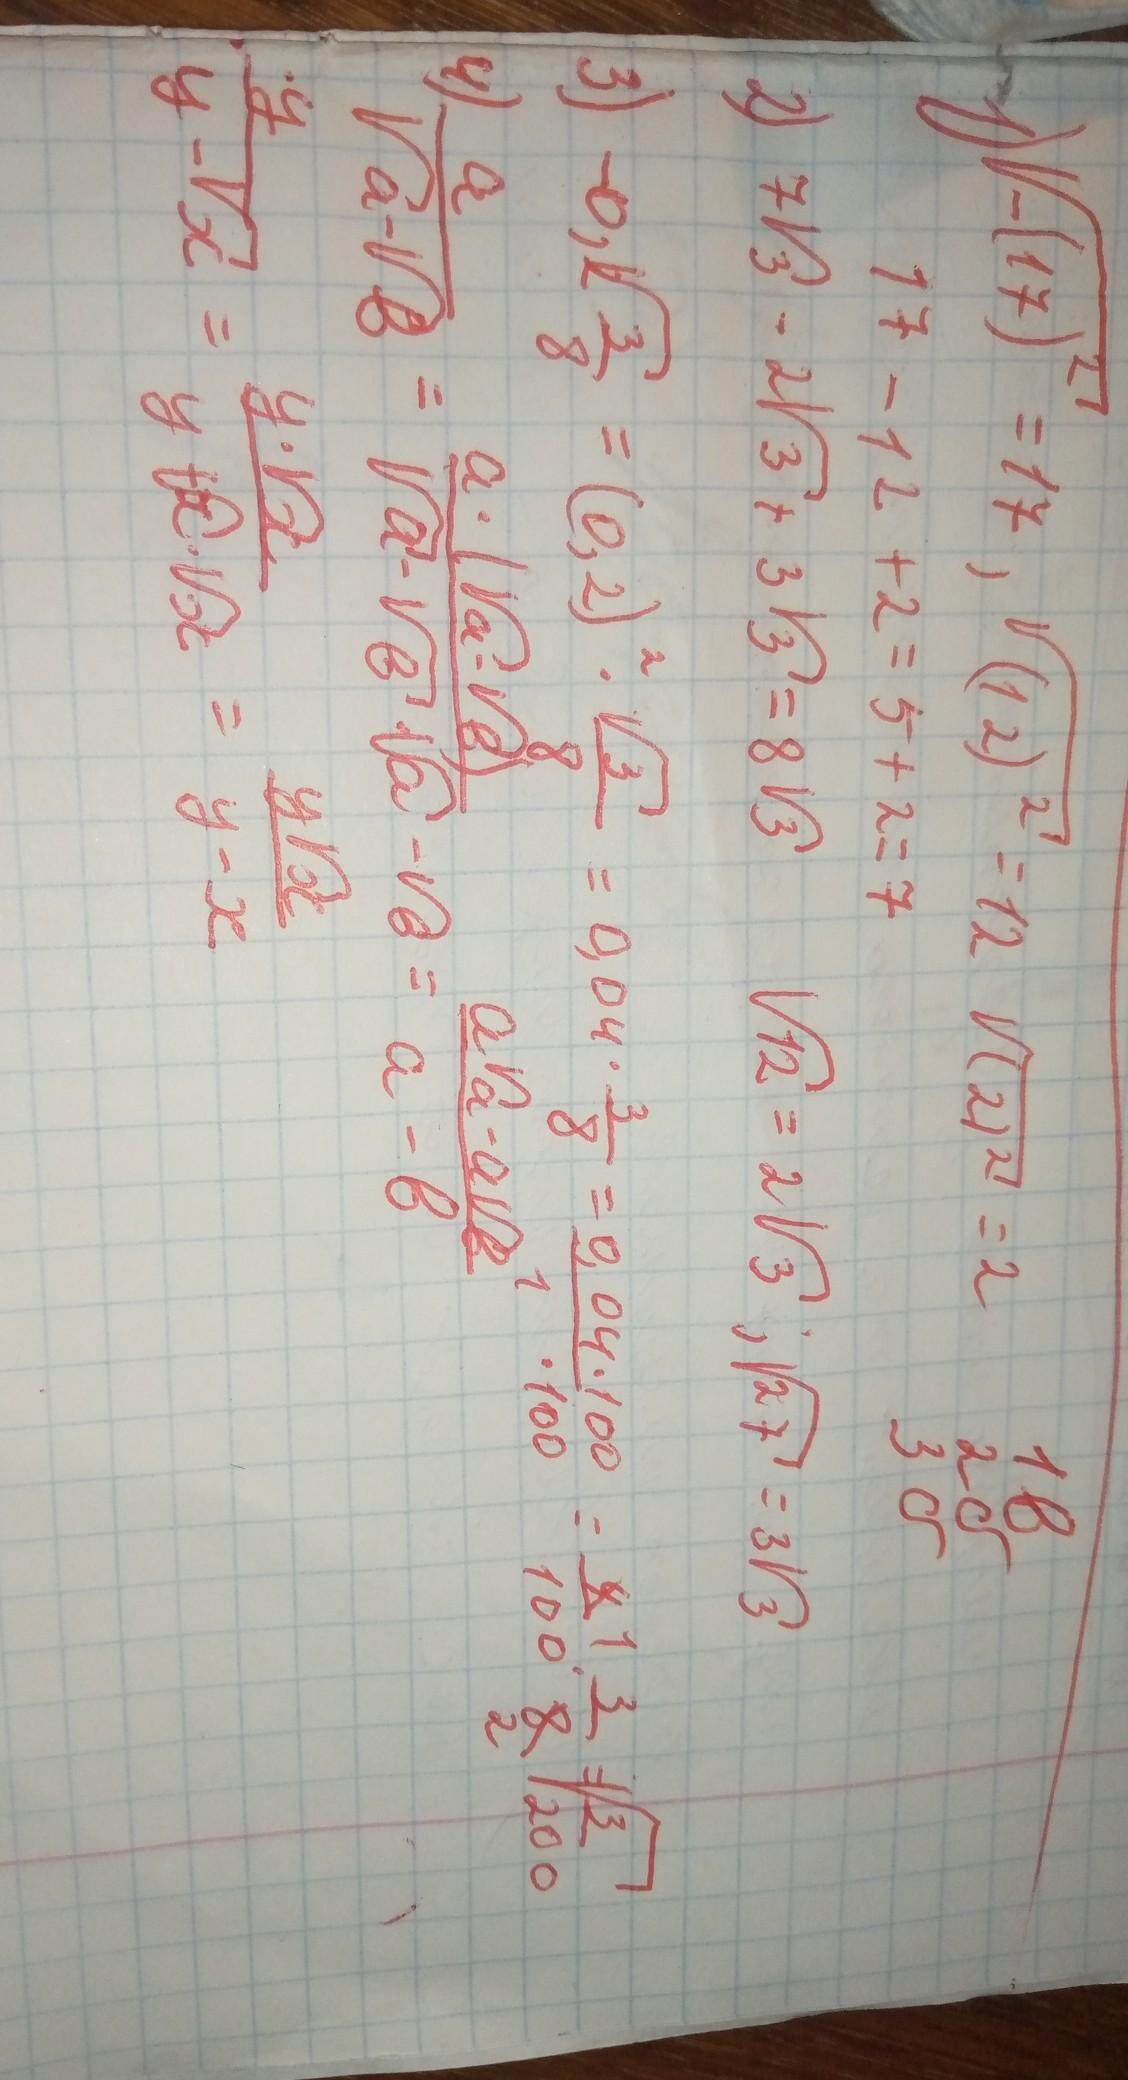 1) √-(17)² = 17, √(12)² = 12 √(2)² = 2
17 - 12 + 2 = 5 + 2 = 7
1 в
2 б
3 б
2) 7√3 - 2√3 + 3√3 = 8√3 √12 = 2√3; √27 = 3√3
3) -0,2√3/8 = (0,2)² · √3/8 = 0,04 · 3/8 = 0,04·100/1·100 = 4 1/100 · 3/8 2 = √3/200
4) a/√a-√b = a·(√a-√b)/√a-√b·√a-√b = a√a-a√b/a-b
y/y-√x = y·√x/y+√x·√x = y√x/y-x